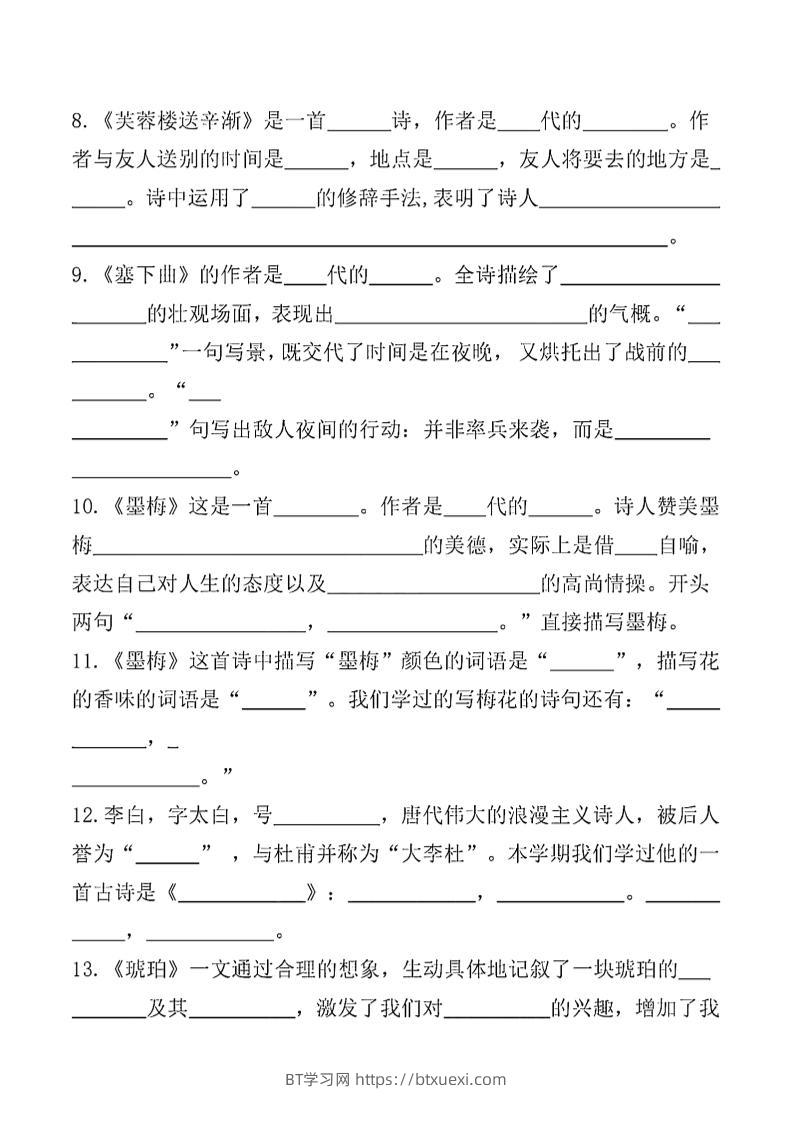 8.《芙蓉楼送辛渐》是一首______诗，作者是____代的________。作
者与友人送别的时间是______，地点是______，友人将要去的地方是_
_____。诗中运用了______的修辞手法,表明了诗人_________________
________________________________________________________。
9.《塞下曲》的作者是____代的______。全诗描绘了_______________
_______的壮观场面，表现出________________________的气概。“___
_________”一句写景，既交代了时间是在夜晚， 又烘托出了战前的___
_______。“___
_________”句写出敌人夜间的行动：并非率兵来袭，而是_________
_______________。
10.《墨梅》这是一首________。作者是____代的______。诗人赞美墨
梅_______________________________的美德，实际上是借____自喻，
表达自己对人生的态度以及____________________的高尚情操。开头
两句“________________，________________。”直接描写墨梅。
11.《墨梅》这首诗中描写“墨梅”颜色的词语是“______”，描写花
的香味的词语是“______”。我们学过的写梅花的诗句还有：“_____
_______，_
____________。”
12.李白，字太白，号__________，唐代伟大的浪漫主义诗人，被后人
誉为“______” ，与杜甫并称为“大李杜”。本学期我们学过他的一
首古诗是《____________》：____________，____________。_______
_____，____________。
13.《琥珀》一文通过合理的想象，生动具体地记叙了一块琥珀的___
_______及其__________，激发了我们对__________的兴趣，增加了我
BT学习网 https://btxuexi.com